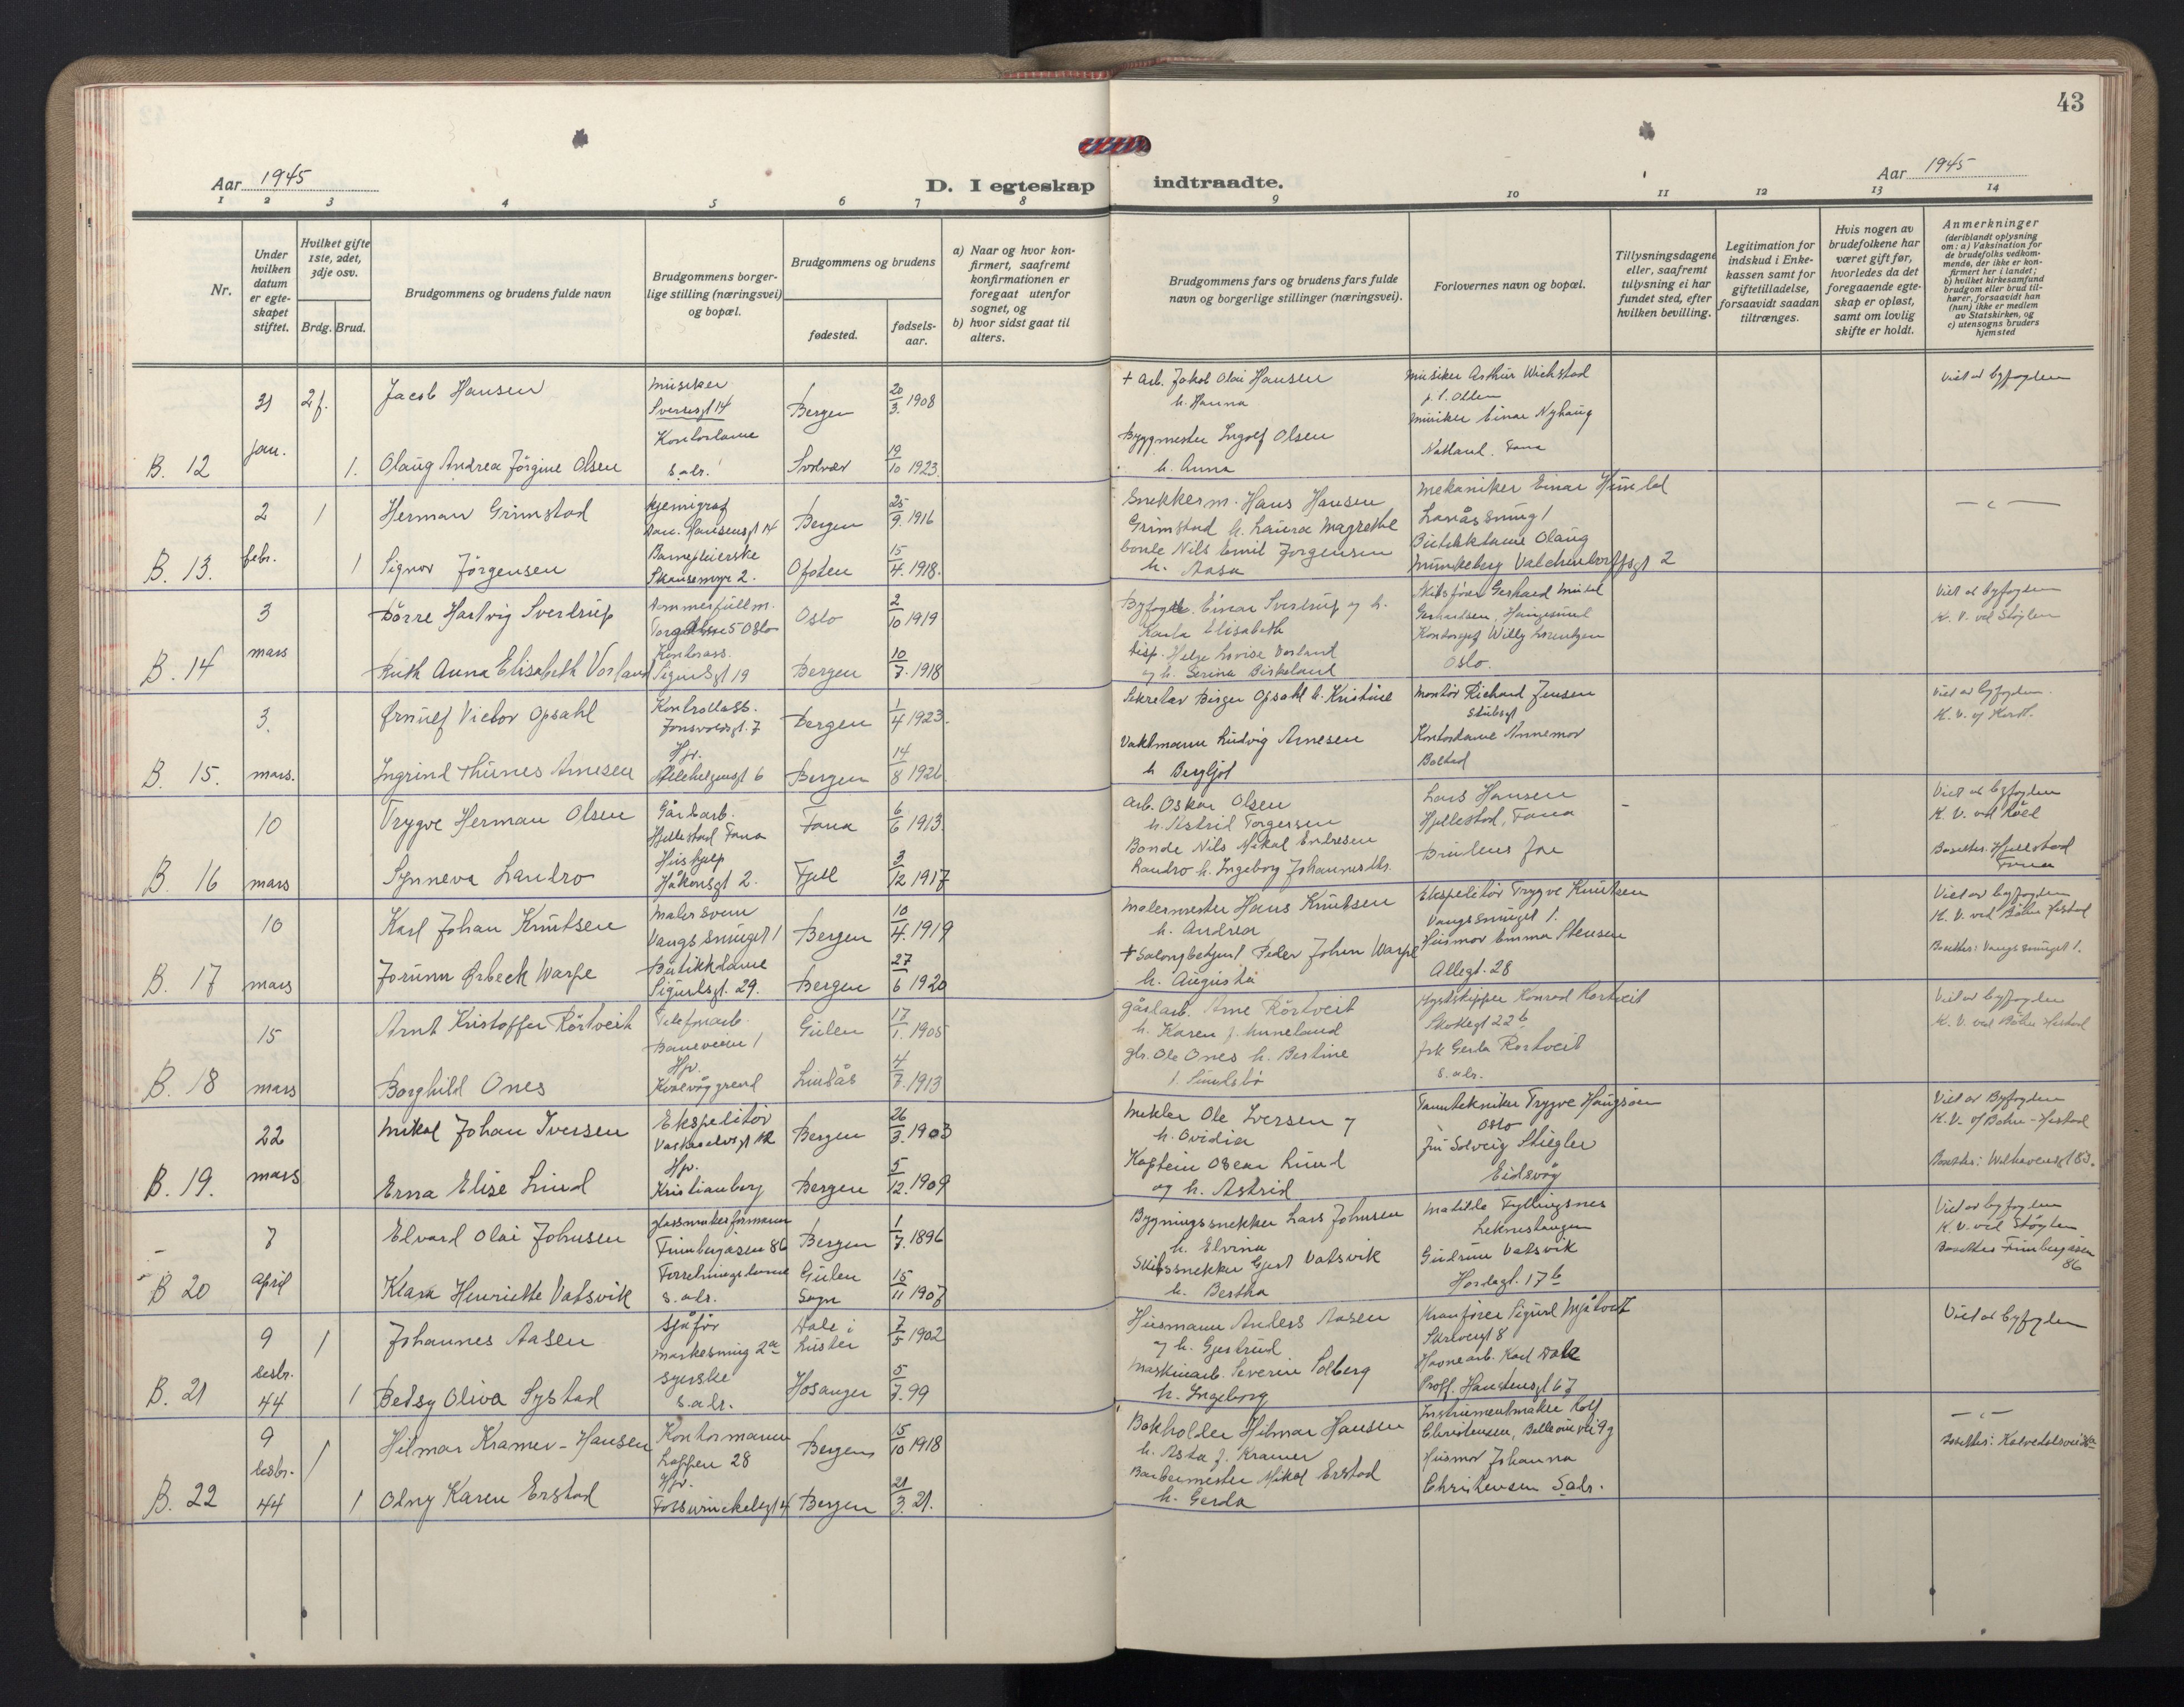 43
Aar 1945
D. I egteskap indtraadte.
Aar 1945
1 2 3 4 5 6 7 8 9 10 11 12 13 14
Nr.
Under hvilken datum er egteskapet stiftet.
Hvilket gifte 1ste, 2det, 3dje osv.
Brdg. Brud.
Brudgommens og brudens fulde navn
Brudgommens borgerlige stilling (næringsvei) og bopæl.
Brudgommens og brudens
fødested.
fødselsaar.
a) Naar og hvor konfirmert, saafremt konfirmationen er foregaat utenfor sognet, og
b) hvor sidst gaat til alters.
Brudgommens fars og brudens fars fulde navn og borgerlige stillinger (næringsvei).
Forlovernes navn og bopæl.
Tillysningsdagene eller, saafremt tillysning ei har fundet sted, efter hvilken bevilling.
Legitimation for indskud i Enkekassen samt for giftetilladelse, forsaavidt saadan tiltrænges.
Hvis nogen av brudefolkene har været gift før, hvorledes da det foregaaende egteskap er opløst, samt om lovlig skifte er holdt.
Anmerkninger
(deriblandt oplysning om: a) Vaksination for de brudefolks vedkommende, der ikke er konfirmert her i landet;
b) hvilket kirkesamfund brudgom eller brud tilhører, forsaavidt han (hun) ikke er medlem av Statskirken, og
c) utensogns bruders hjemsted
31 2f. Jacob Hansen Musiker Sverresgt 14 Bergen 20/3 1908 + Arb. Jakob Olai Hansen h. Hanna Musiker Arthur Wichstad Viet av byfogden
B. 12 jan. 1. Olaug Andrea Jörgine Olsen Kontordame s. adr. Svolvær 19/10 1923 Byggmester Ingolf Olsen h. Anna Musiker Einar Nyhaug Natland. Fana
2 1 Herman Grimstad Kjemigraf Dan. Hansensgt 14 Bergen 25/9 1916 Snekkerm. Hans Hansen Grimstad h. Laura Magrethe Mekaniker Einar
B. 13. febr. 1 Signor Jörgensen Barnepleierske Skansemyr 2. Ofoten 15/4 1918. bonde Nils Emil Jörgensen h. Aasa Butikkdame Olaug Munkeberg Valckendorffsgt 2
3 Börre Hartvig Sverdrup Oslo 2/10 1919 Byfogd. Einar Sverdrup og h. Karla Elisabeth Gerhard Viet av byfogden K. V. ved Stöylen
B. 14 mars Ruth Anna Elisabeth Vorland Kontorass. Sigurdsgt 19 Bergen 10/7 1918 disp. Helge Lovise Vorland og h. Serina Birkeland Willy Lorentzen Oslo.
3. Ørnulf Victor Opsahl Kontrollass. Jonsvollsgt. 7 Bergen 1/4 1923 Sekretær Birger Opsahl h. Kristine Montör Richard Jensen Viet av byfogden.
B. 15. mars. Ingrid Thunes Arnesen Hjv. Bergen 14/8 1926 Vaktmann Ludvig Arnesen h Bergljot Kontordame Annemor Bolstad
10 Trygve Herman Olsen Gårdarb. Hjellestad Fana Fana 6/6 1913. arb. Oskar Olsen h. Astrid Torgersen Lars Hansen Hjellestad, Fana Viet av byfogden
B. 16 mars Synneva Landro Hushjelp Håkonsgt 2. Fjell 3/12 1917 Bonde Nils Mikal Endresen Landro h. Ingeborg Johannesdtr. Brudens far Bosettes. Hjellestad Fana
10 Karl Johan Knutsen Malersvenn Vangssmuget 1 Bergen 10/4. 1919 Malermester Hans Knutsen h. Andrea Ekspeditör Trygve Knutsen Vangssmuget 1. Viet av byfogden
B. 17 mars Jorunn Ørbeck Warpe Butikkdame Sigurdsgt. 29. Bergen 27/6 1920 + Salongbetjent Peder Johan Warpe h. Augusta Husmor Emma Stensen Allegt. 28 Bosettes: Vangssmuget 1.
15 Arnt Kristoffer Rörtveit Telefonarb. Baneveien 1 Gulen 17/1. 1905 gårdarb. Arne Rörtveit h. Karen f. Konrad Rortveit Skottegt 22b Viet av byfogden
B. 18 mars Borghild Ones Hjv. Lindås 4/7. 1913 gbr. Ole Ones h. Bertine frk Gerda Rortveit s. adr.
22 Mikal Johan Iversen Ekspeditör Bergen 26/3. 1903 Mekler Ole Iversen og h. Ovidia Tanntekniker Trygve Haugsöen Oslo Viet av Byfogden
B. 19. mars Erna Elise Lund Hjv. Kristianborg Bergen 5/12. 1909 Kaptein Oscar Lund og h. Astrid Fru Solveig Stiegler Eidsvåg Bosettes: Welhavensgt 83.
7 Edvard Olai Johnsen glassmakerformann Finnbergåsen 86 Bergen 1/7. 1896 Bygningssnekker Lars Johnsen h. Elvina Matilde Fyllingsnes Viet av byfogden K. V. ved Stöylen
B 20 April Klara Henriette Vatsvik Forretningsdame s. adr. Gulen Sogn 15/11 1907 Skibssnekker Gjert Vatsvik h. Bertha Gudrun Vatsvik Hordagt. 17b Bosettes Finnbergåsen 86
9 1 Johannes Aasen Sjåför Markesmug 2a Dale i Luster 7/5 1902 Husmann Anders Aasen og h. Gjertrud Kranförer Sigurd Mjåtveit Viet av byfogden
B. 21 desbr. 44 1 Betsy Oliva Systad Syerske s. adr. Hosanger 5/7. 99 Maskinarb. Severin Solberg h. Ingeborg Havnearb. Karl Dale Proff. Hanstensgt 67
9 1 Hilmar Kramer-Hansen Kontormann Lappen 28 Bergen 15/10 1918 Bokholder Hilmar Hansen h. Asta f. Kramer Instrumentmaker Rolf Christensen, Bellevuevei 9g
B. 22 desbr. 44 1 Olny Karen Erstad Hjv. Bergen 21/3. 21. Barbermester Mikal Erstad h. Gerda Husmor Johanna Christensen S.adr.